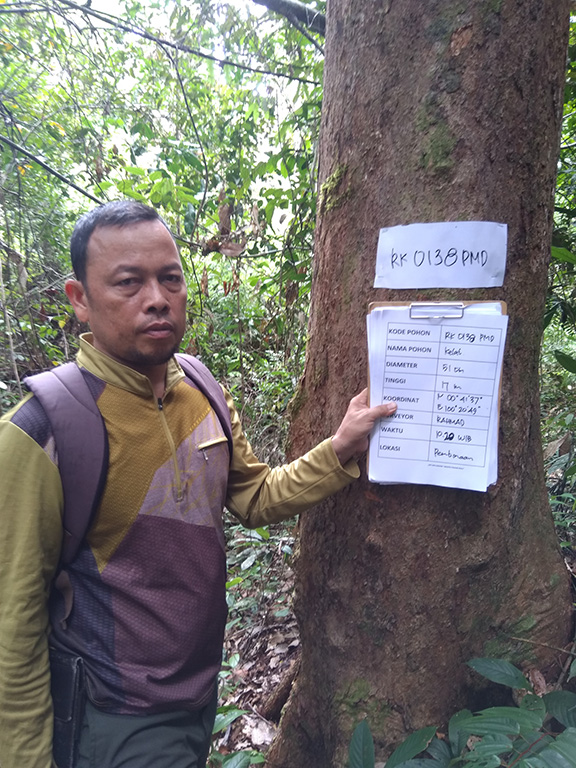 RK 0138 PMD
KODE POHON RK 0138 PMD
NAMA POHON Kelat
DIAMETER 51 cm
TINGGI 17 m
KOORDINAT N 00° 41' 37"
E 100° 20' 49"
SURVEYOR RAHMAD
WAKTU 10 20 WIB
LOKASI Pembinaan